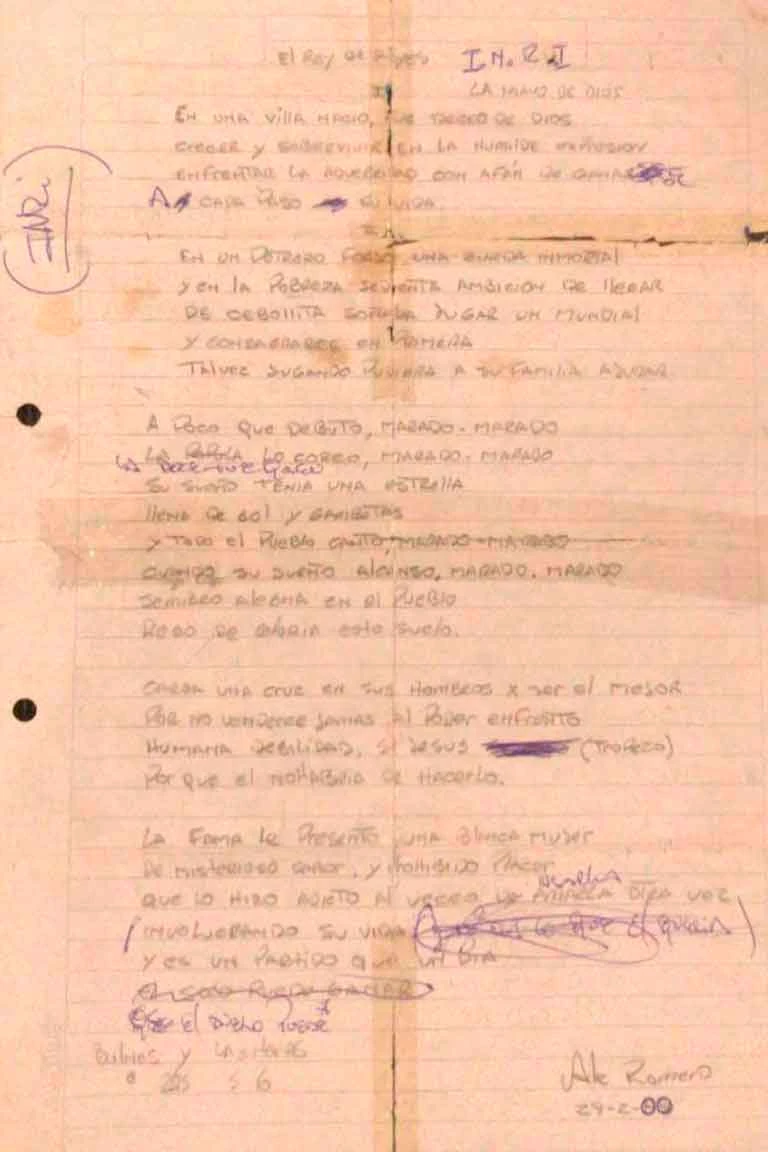 El Rey de Reyes I.N.R.I
LA MANO DE DIOS
INRi
EN UNA VillA NACIO, FUE DESEO DE DIOS
CRECER Y SOBREVIVIR EN LA HUMILDE EXPRESION
ENFRENTAR LA ADVERSIDAD CON AFÁN DE GANARSE
A CADA PASO SU VIDA.
EN UN POTRERO FORJO UNA ZURDA INMORTAl
Y EN lA POBREZA SEDIENTA AMBICION DE llEGAR
DE CEBOllITA SOÑABA JUGAR UN MUNDIAl
Y CONSAGRARCE EN PRIMERA
TAlVEZ JUGANDO PUDIERA A SU FAMILIA AYUDAR
A POCO QUE DEBUTO, MARADO-MARADO
LA LO COREO, MARADO-MARADO
LA
SU SUEÑO TENIA UNA ESTRElla
llENA DE GOl Y GAMBETAS
Y TODO El PUEBlO CANTO, MARADO-MARADO
CUANDO SU SUEÑO AlCANSO, MARADO. MARADO
SEMBRO AlEGRIA EN El PUEBlO
REGO DE GLORIA ESTE SUElO.
CARGA UNA CRUZ EN SUS HOMBROS X SER El MEJOR
POR NO VENDERCE JAMAS Al PODER ENFRENTO
HUMANA DEBILIDAD, SI JESUS (TROPEZO)
POR QUE El NO HABRIA DE HACERLO.
LA FAMA LE PRESENTO UNA BlANCA MUJER
DE MISTERIOSO SABOR, Y PROHIBIDO PLACER
QUE LO HIZO ADICTO Al DESEO DE USARLA OTRA VEZ
INVOLUCRANDO SU VIDA
Y ES UN PARTIDO QUE UN DIA
El SOLO PUEDE GANAR
El DIEGO
Y LAS
Ale Romero
29-2-00